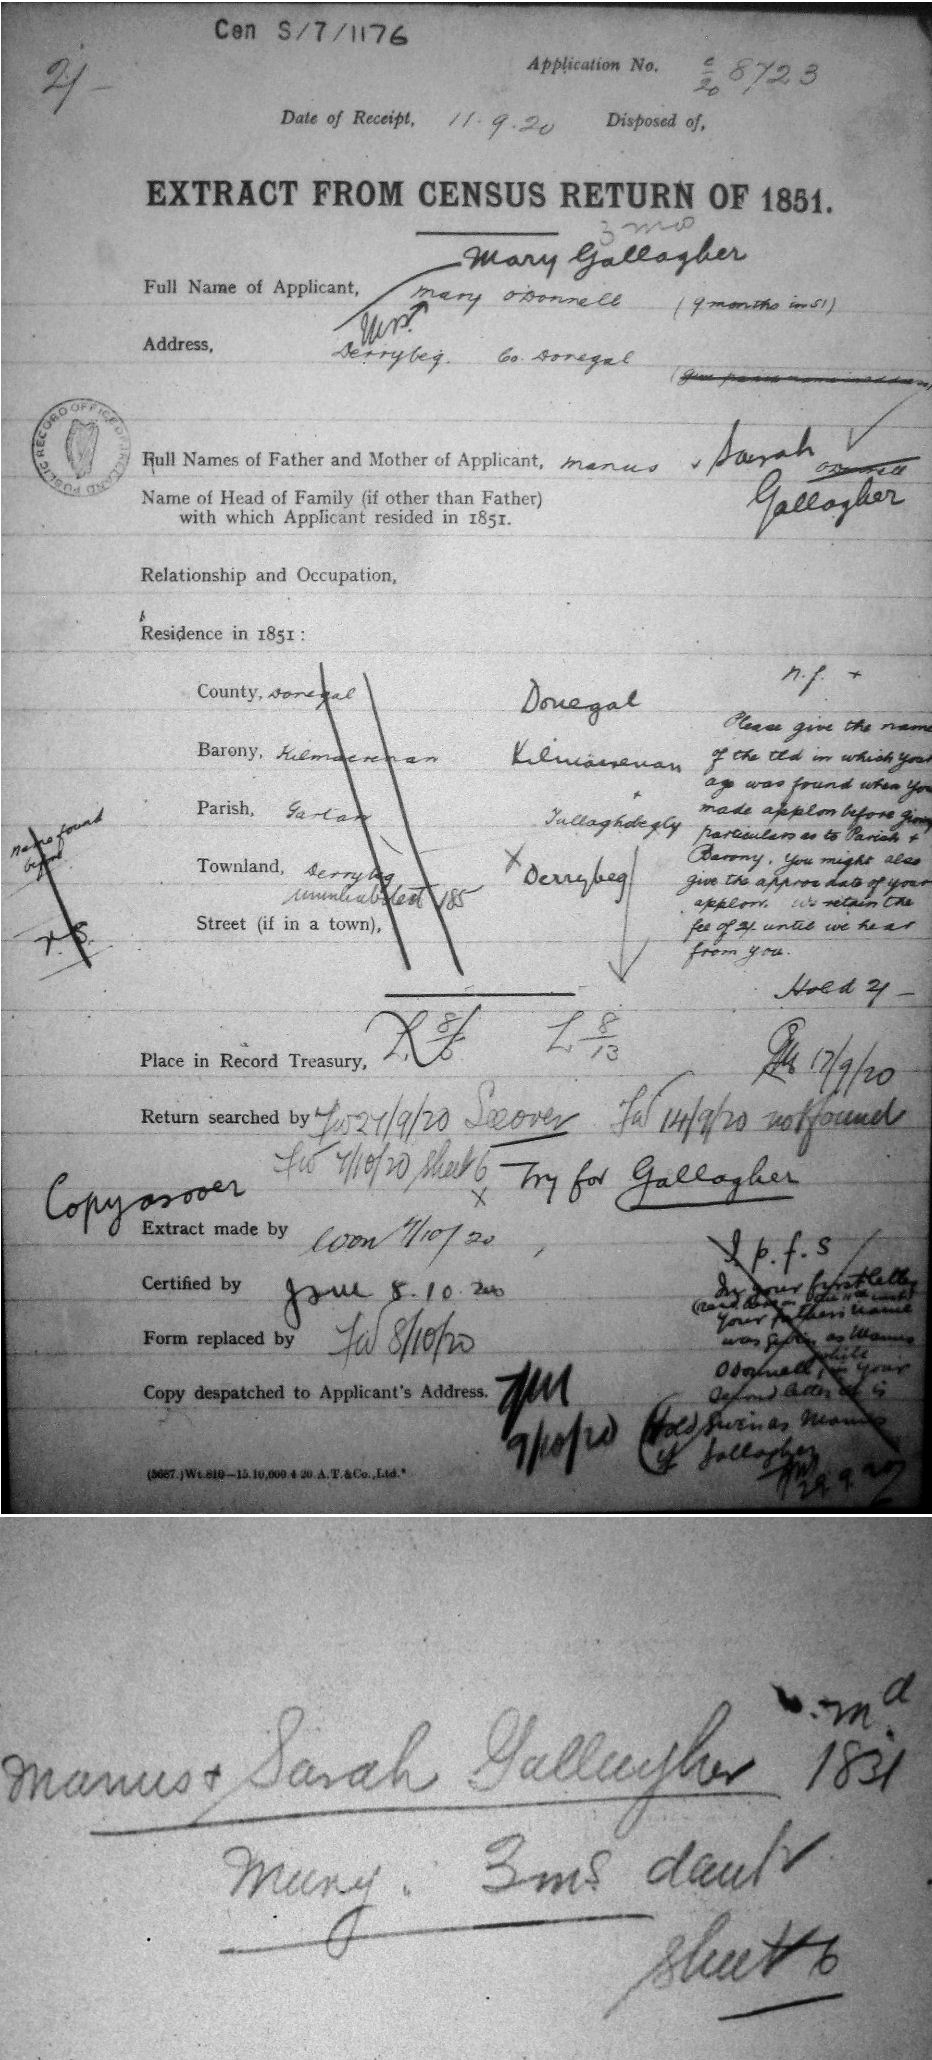 Cen S/7/1176
2/-
Application No. c/20 8723
Date of Receipt, 11.9.20 Disposed of,
EXTRACT FROM CENSUS RETURN OF 1851.
3 mo
Mary Gallagher
Full Name of Applicant, Mary O'Donnell (9 months in 51)
Mrs.
Address, Derrybeg. Co. Donegal
PUBLIC RECORD OFFICE OF IRELAND
Full Names of Father and Mother of Applicant, Manus + Sarah
O'Donnell
Gallagher
Name of Head of Family (if other than Father)
with which Applicant resided in 1851.
Relationship and Occupation,
Residence in 1851:
n.f. +
County, Donegal Donegal
Barony, Kilmacrenan Kilmacrenan
Parish, Gartan Tullaghobegly
Townland, Derrybeg Derrybeg
uninhabited
Street (if in a town),
name found
before
Please give the name
of the tld in which your
age was found when you
made applon before giving
particulars as to Parish +
Barony. You might also
give the approx date of your
applon. We retain the
fee of 2/ until we hear
from you.
Hold 2/-
17/9/20
Place in Record Treasury, L 8/6 L 8/13
Return searched by FW 27/9/20 See over FW 14/9/20 not found
FW 7/10/20 sheet 6 Try for Gallagher
Copy as over
Extract made by 7/10/20
Certified by 8.10.20
Form replaced by FW 8/10/20
Copy despatched to Applicant's Address.
9/10/20
I p. f. s
In your first letter
your father's name
was given as Manus
O'Donnell, while in your
second letter it is
given as Manus
Gallagher
Hold
2/
29.9.20
(5687.)Wt.810—15.10,000.4.20.A.T.&Co.,Ltd.
md
Manus + Sarah Gallagher 1831
Mary: 3ms daur
sheet 6